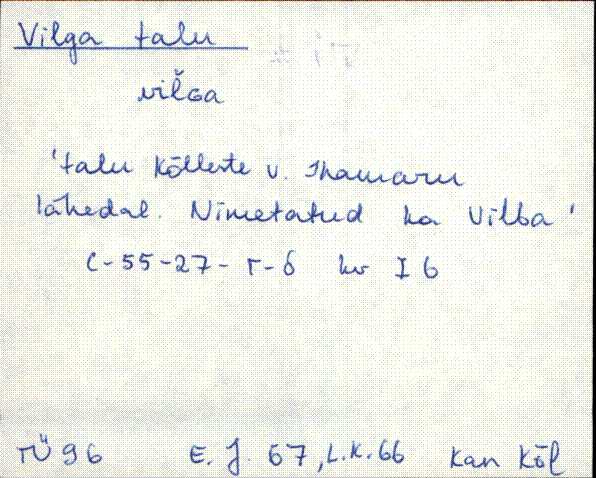 Vilga talu
vilGa
'talu Kõlleste v. Ihamaru
lähedal. Nimetatud ka Vilba'
C-55-27-Г-б kv I 6
TÜ 96 E. J. 67, L.K. 66 Kan Kõl